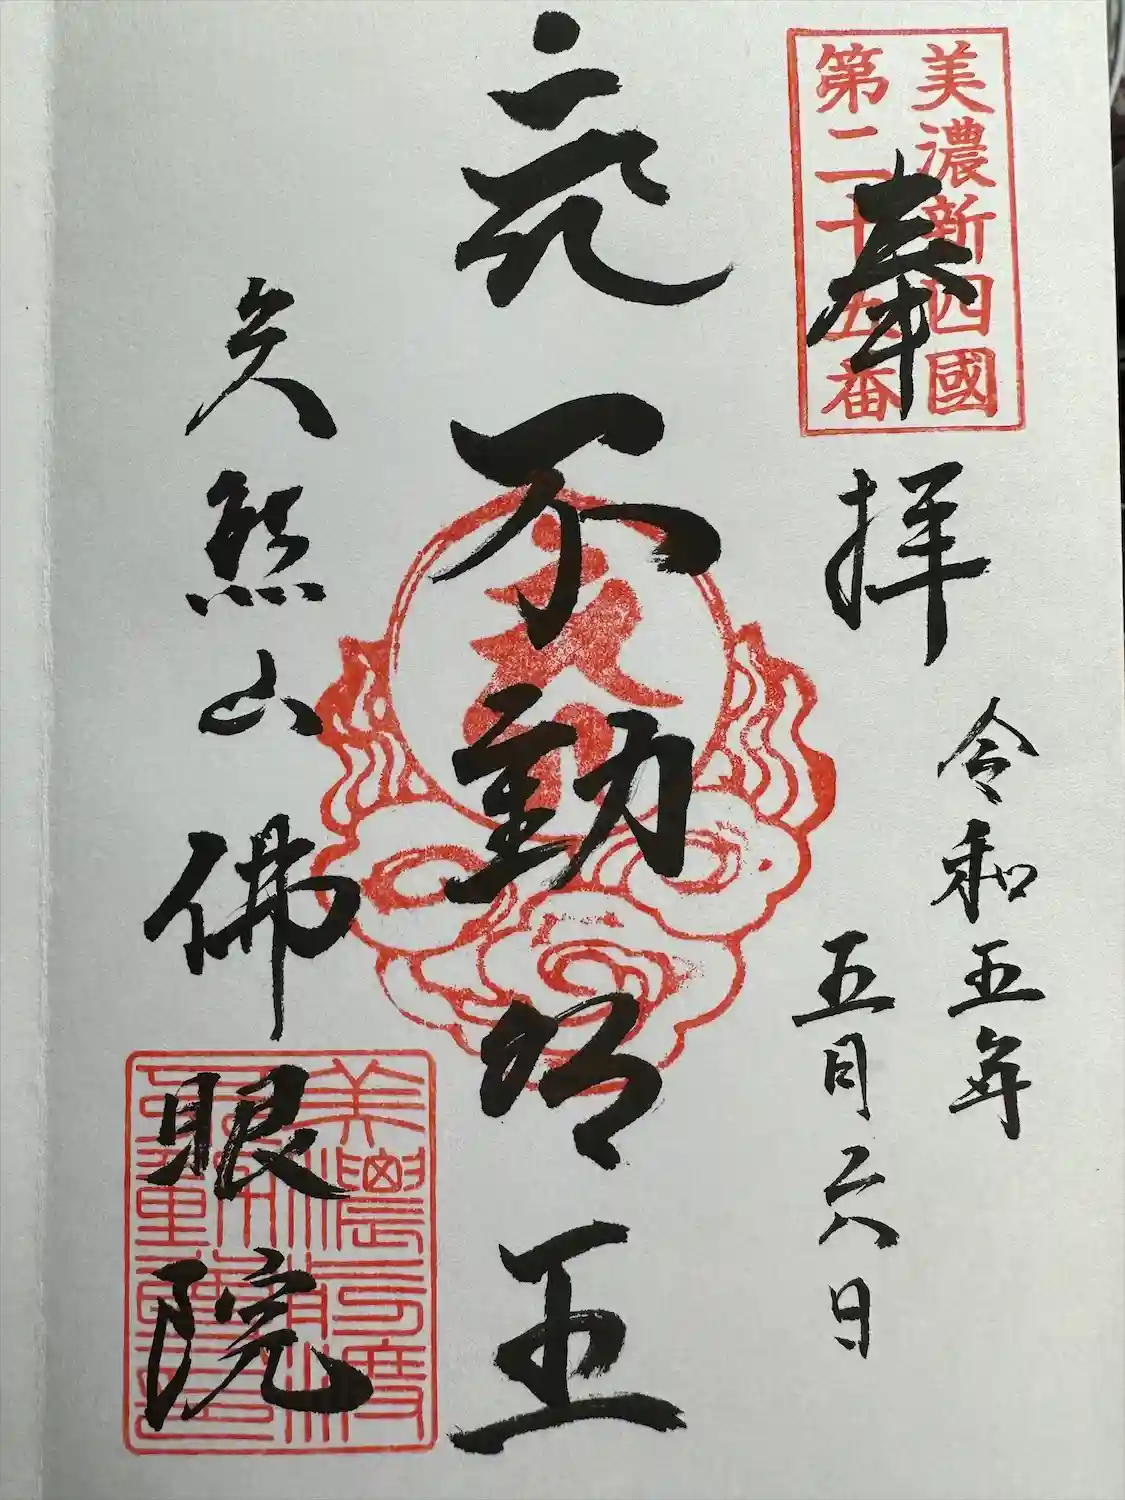 美濃新四國
第二十五番
奉拝
令和五年
五月六日
不動明王
久熊山佛眼院